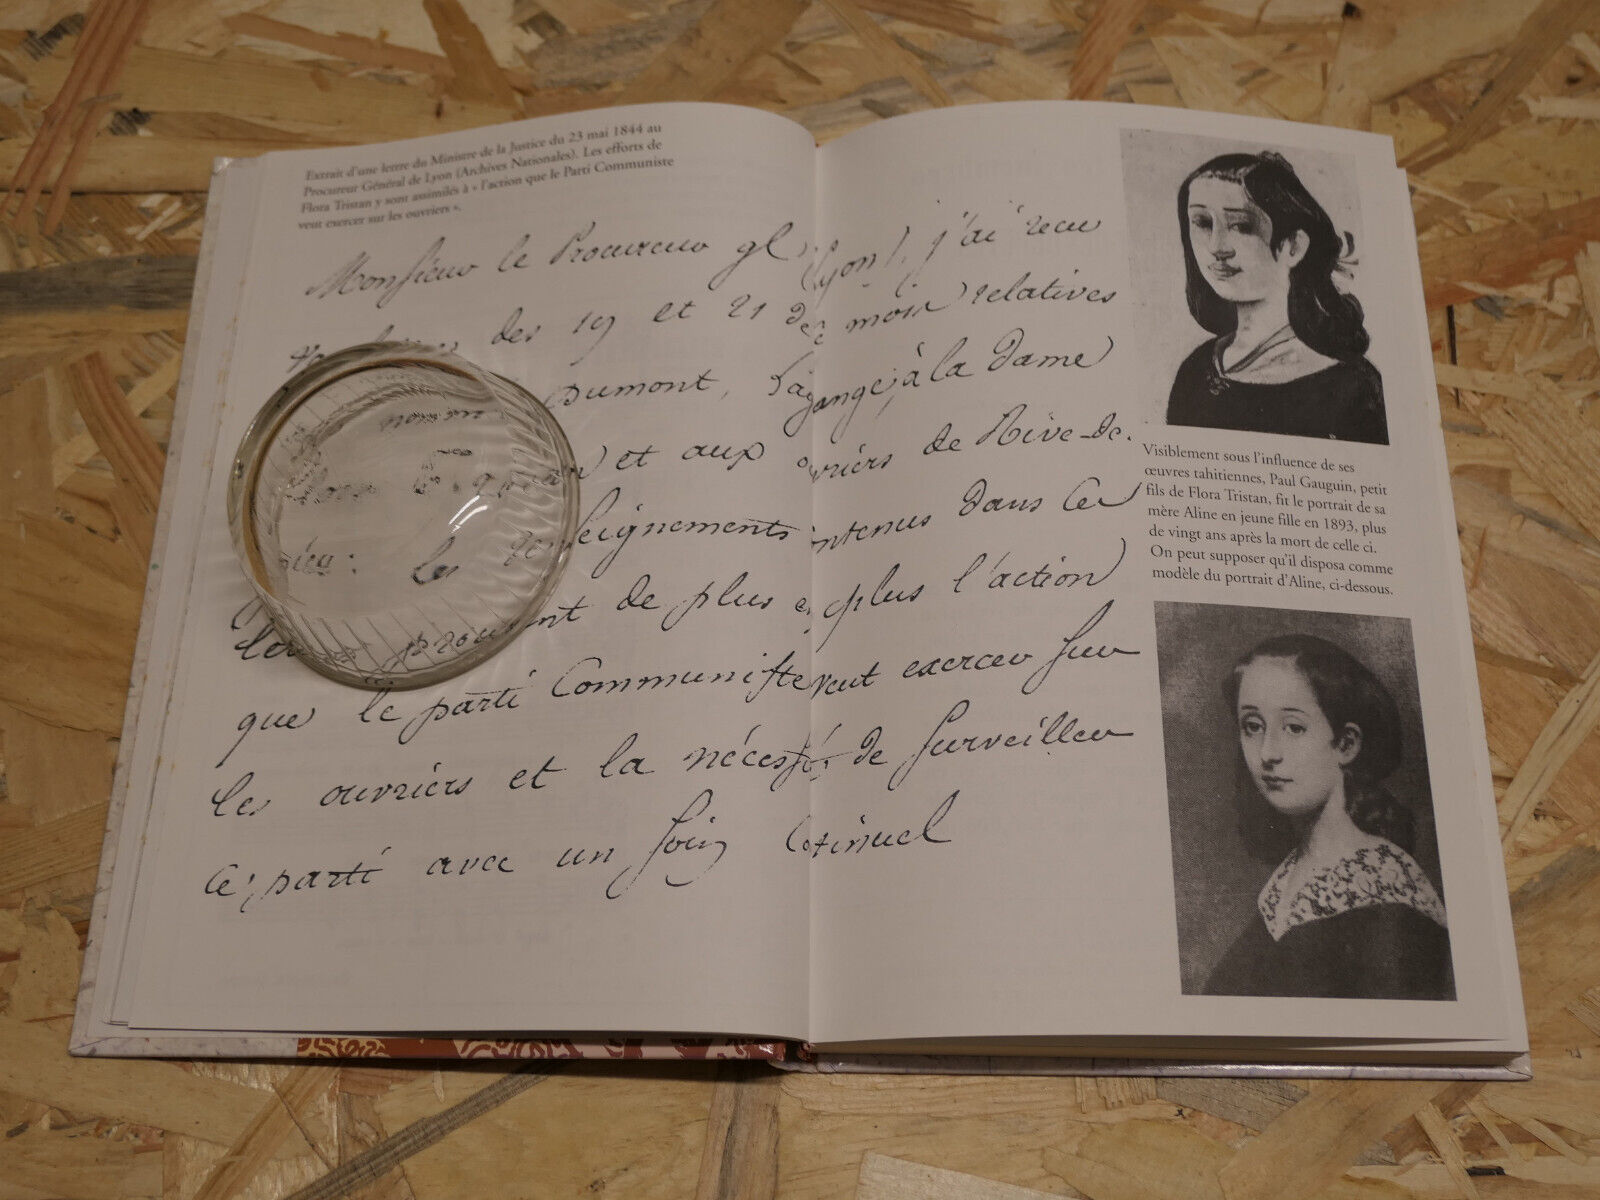 Extrait d'une lettre du Ministre de la Justice du 23 mai 1844 au
Procureur Général de Lyon (Archives Nationales). Les efforts de
Flora Tristan y sont assimilés à « l'action que le Parti Communiste
veut exercer sur les ouvriers ».
Monsieur le Procureur gl (Lyon), j'ai reçu
des 19 et 21 de ce mois relatives
Dumont, Lagange, à la Dame
et aux ouvriers de Rive-de-
: les renseignements contenus dans ces
prouvent de plus en plus l'action
que le parti Communiste veut exercer sur
les ouvriers et la nécessité de surveiller
ce parti avec un soin continuel
Visiblement sous l'influence de ses
œuvres tahitiennes, Paul Gauguin, petit
fils de Flora Tristan, fit le portrait de sa
mère Aline en jeune fille en 1893, plus
de vingt ans après la mort de celle ci.
On peut supposer qu'il disposa comme
modèle du portrait d'Aline, ci-dessous.